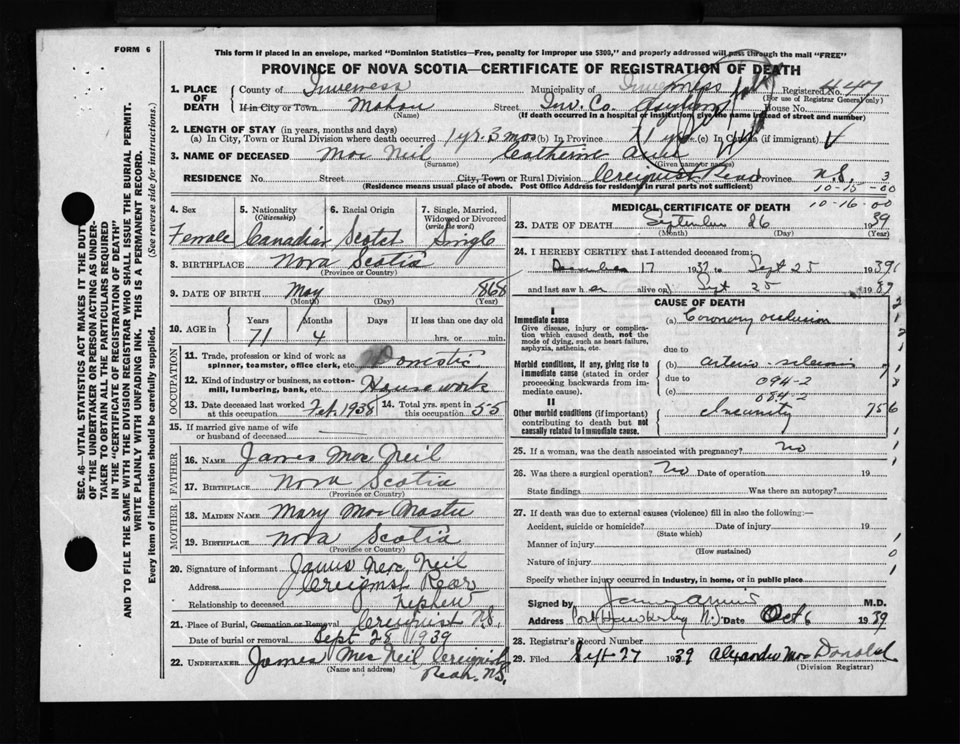 FORM 6
This form if placed in an envelope, marked "Dominion Statistics—Free, penalty for improper use $300," and properly addressed will pass through the mail "FREE"
PROVINCE OF NOVA SCOTIA—CERTIFICATE OF REGISTRATION OF DEATH
SEC. 46—VITAL STATISTICS ACT MAKES IT THE DUTY
OF THE UNDERTAKER OR PERSON ACTING AS UNDER-
TAKER TO OBTAIN ALL THE PARTICULARS REQUIRED
IN THE "CERTIFICATE OF REGISTRATION OF DEATH"
AND TO FILE THE SAME WITH THE DIVISION REGISTRAR WHO SHALL ISSUE THE BURIAL PERMIT.
WRITE PLAINLY WITH UNFADING INK. THIS IS A PERMANENT RECORD.
Every item of information should be carefully supplied. (See reverse side for instructions.)
1. PLACE OF DEATH County of Inverness Municipality of Registered No. 4447
(For use of Registrar General only)
If in City or Town Mabou Street Inv. Co. Asylum House No.
(Name) (If death occurred in a hospital or institution, give the name instead of street and number)
2. LENGTH OF STAY (in years, months and days)
(a) In City, Town or Rural Division where death occurred 1 yr. 3 mos (b) In Province 71 yrs (c) In Canada (if immigrant)
3. NAME OF DECEASED Mac Neil Catherine
(Surname) (Given name or names)
RESIDENCE No. Street City, Town or Rural Division Rear Province N.S. 3
(Residence means usual place of abode. Post Office Address for residents in rural parts not sufficient)
10-15-00
10-16-00
4. Sex 5. Nationality (Citizenship) 6. Racial Origin 7. Single, Married, Widowed or Divorced (write the word)
Female Canadian Scotch Single
8. BIRTHPLACE Nova Scotia
(Province or Country)
9. DATE OF BIRTH May 1868
(Month) (Day) (Year)
10. AGE in Years Months Days If less than one day old
71 4 hrs. or min.
OCCUPATION
11. Trade, profession or kind of work as spinner, teamster, office clerk, etc. Domestic
12. Kind of industry or business, as cotton-mill, lumbering, bank, etc. House work
13. Date deceased last worked at this occupation Feb 1938 14. Total yrs. spent in this occupation 55
15. If married give name of wife or husband of deceased —
FATHER
16. NAME James Mac Neil
17. BIRTHPLACE Nova Scotia
(Province or Country)
MOTHER
18. MAIDEN NAME Mary Mac Master
19. BIRTHPLACE Nova Scotia
(Province or Country)
20. Signature of informant James Mac Neil
Address Creignish Rear
Relationship to deceased Nephew
21. Place of Burial, Cremation or Removal Creignish N.S.
Date of burial or removal Sept 28 1939
22. UNDERTAKER James Mac Neil Creignish
(Name and address) Rear. N.S.
MEDICAL CERTIFICATE OF DEATH
23. DATE OF DEATH September 26 1939
(Month) (Day) (Year)
24. I HEREBY CERTIFY that I attended deceased from:
December 17 1937 to Sept 25 1939
and last saw her alive on Sept 25 1939
CAUSE OF DEATH
I
Immediate cause
Give disease, injury or complication which caused death, not the mode of dying, such as heart failure, asphyxia, asthenia, etc.
(a) Coronary occlusion
due to
Morbid conditions, if any, giving rise to immediate cause (stated in order proceeding backwards from immediate).
(b) Arterio-sclerosis
due to 094-2
(c) 084-2
II
Other morbid conditions (if important) contributing to death but not causally related to immediate cause.
Insanity 756
25. If a woman, was the death associated with pregnancy? no
26. Was there a surgical operation? No Date of operation 19
State findings Was there an autopsy?
27. If death was due to external causes (violence) fill in also the following:—
Accident, suicide or homicide? Date of injury 19
(State which)
Manner of injury
(How sustained)
Nature of injury
Specify whether injury occurred in industry, in home, or in public place
Signed by M.D.
Address Port Hawkesbury N.S. Date Oct 6 1939
28. Registrar's Record Number
29. Filed Sept 27 1939 Alexander Mac Donald
(Division Registrar)